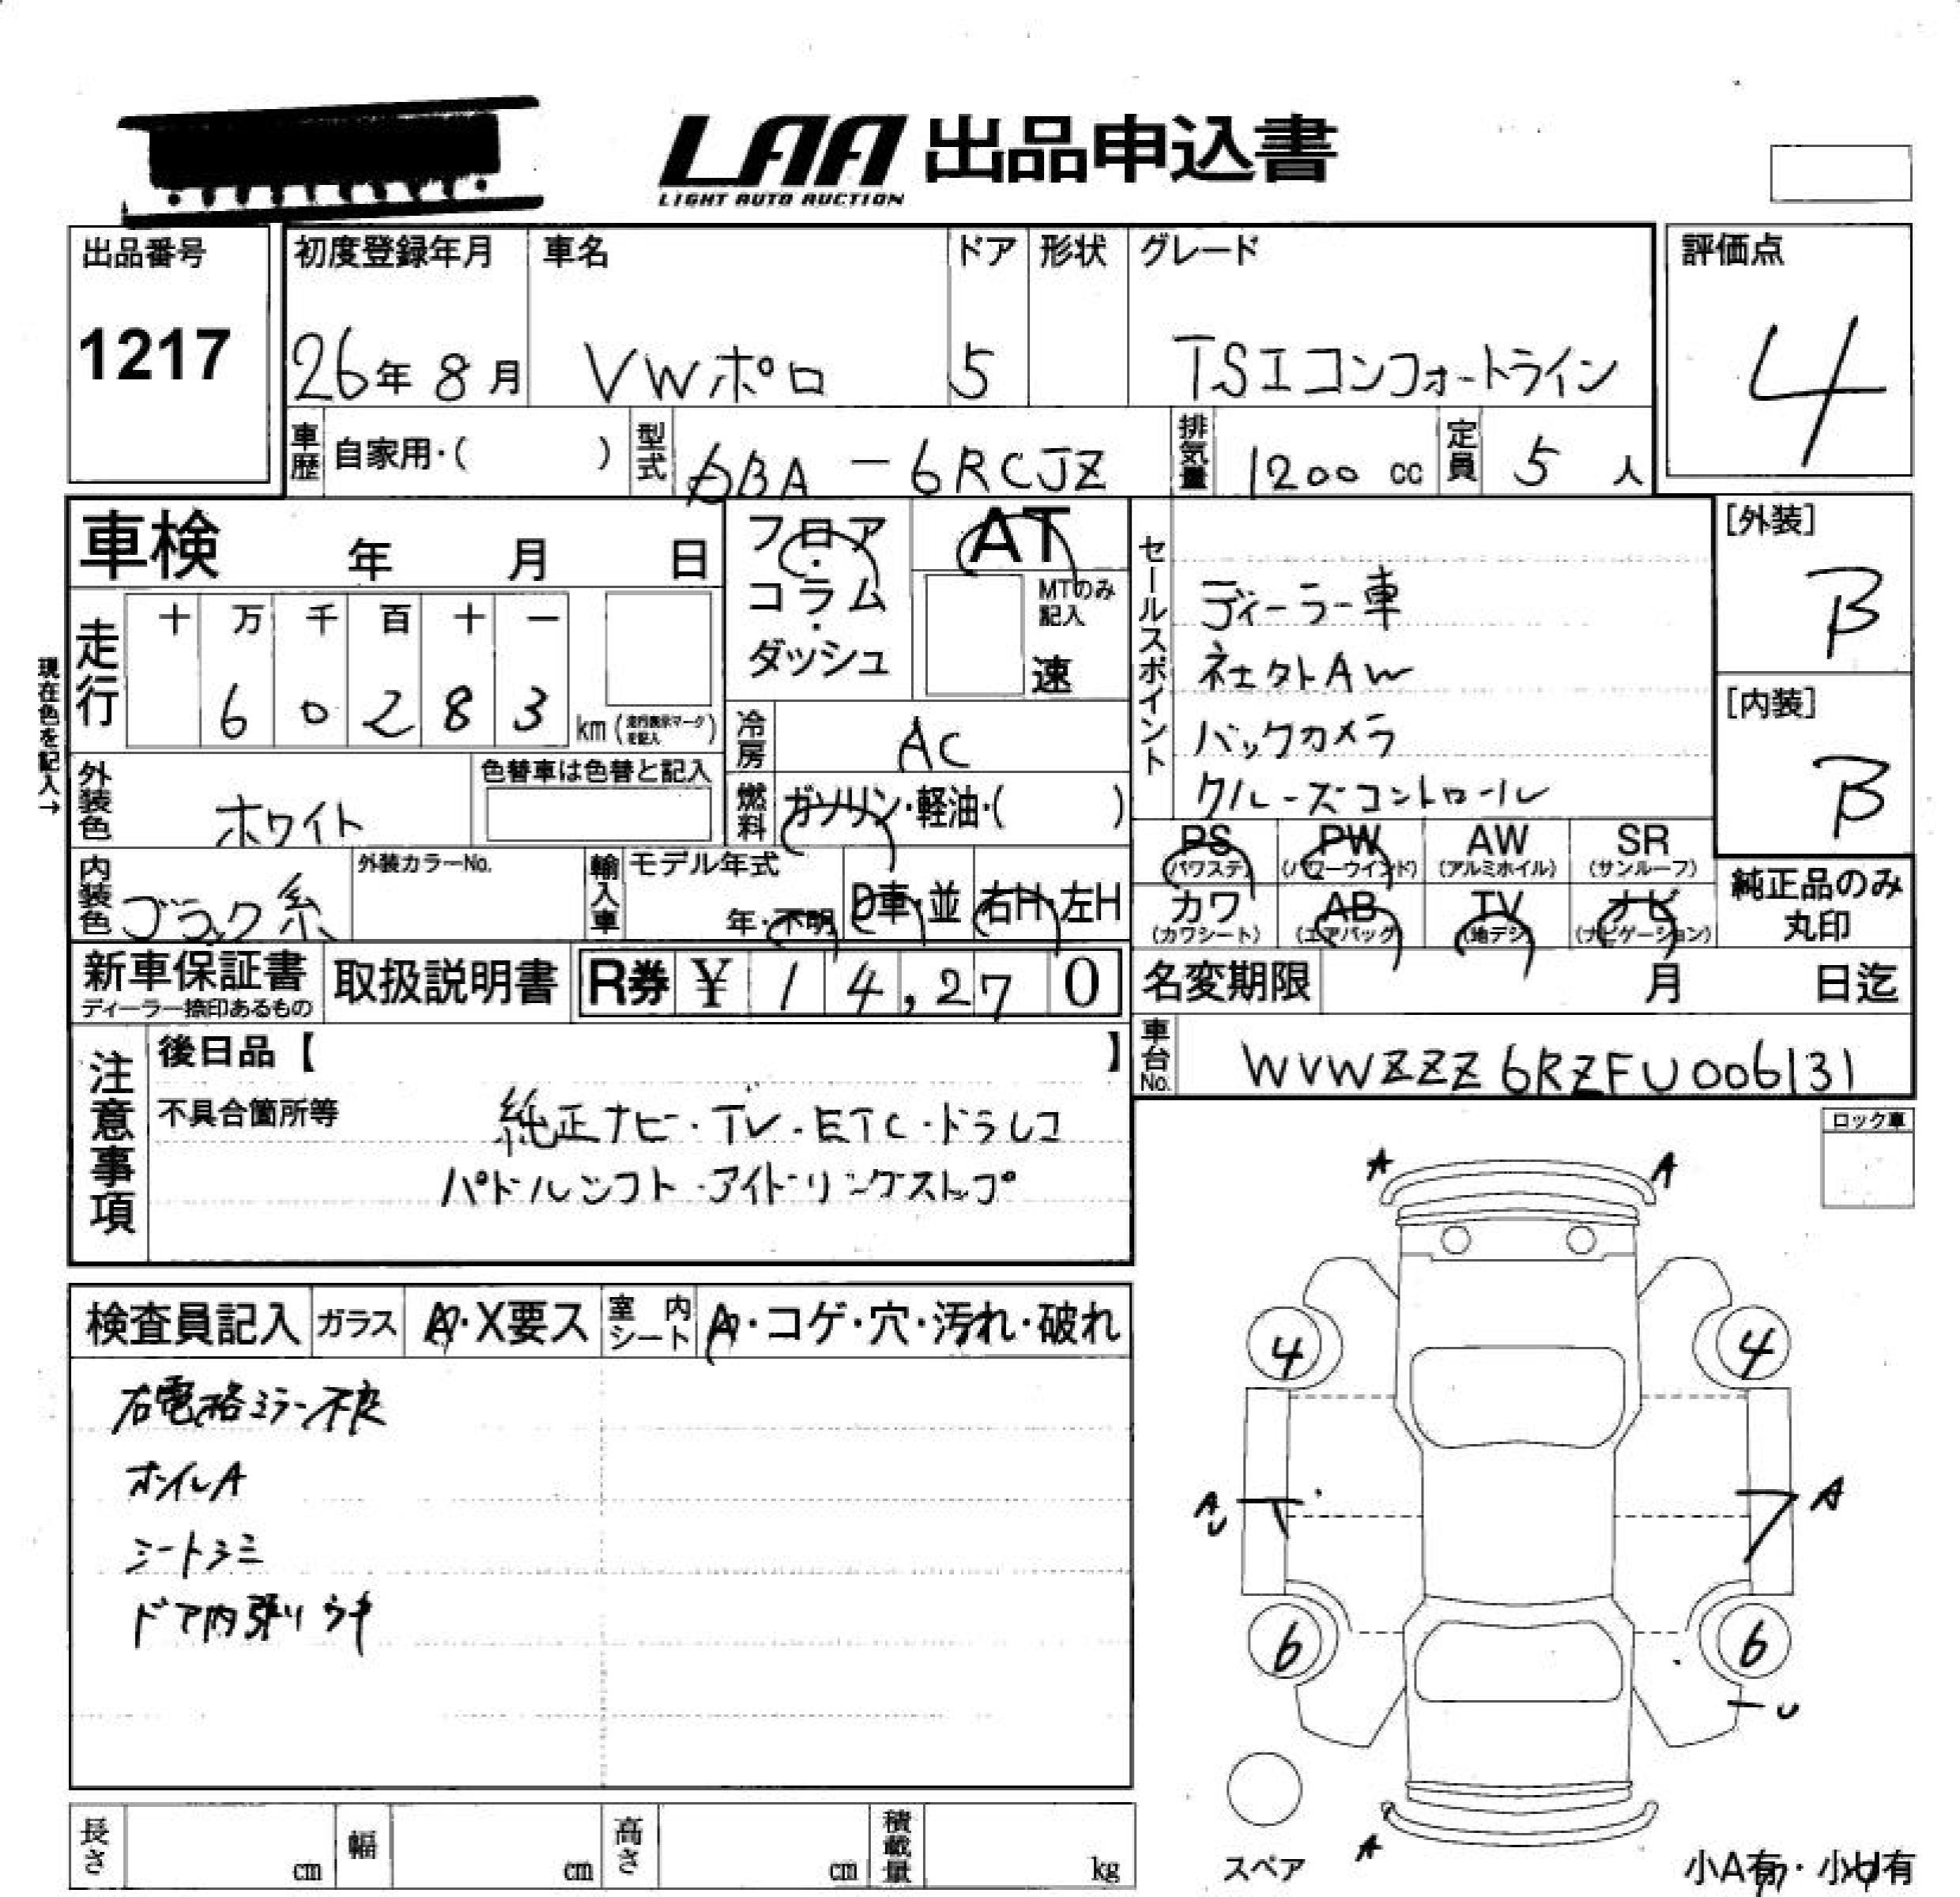 LAA 出品申込書
LIGHT AUTO AUCTION
出品番号
1217
初度登録年月
26年8月
車名
VWポロ
ドア
5
形状
グレード
TSIコンフォートライン
評価点
4
車歴
自家用・( )
型式
6RCJZ
排気量
1200 cc
定員
5 人
車検 年 月 日
フロア・コラム・ダッシュ
AT
MTのみ記入
速
セールスポイント
ディーラー車
社外AW
バックカメラ
クルーズコントロール
[外装]
B
[内装]
B
現在色を記入→
走行
十 万 千 百 十 一
6 0 2 8 3 km (走行表示マークを記入)
冷房
AC
外装色
ホワイト
色替車は色替と記入
燃料
ガソリン・軽油・( )
PS (パワステ)
PW (パワーウインド)
AW (アルミホイル)
SR (サンルーフ)
内装色
ブラック系
外装カラーNo.
輸入車
モデル年式
年・不明
D車・並
右H・左H
カワ (カワシート)
AB (エアバック)
TV (地デジ)
ナビ (ナビゲーション)
純正品のみ丸印
新車保証書
ディーラー捺印あるもの
取扱説明書
R券 ¥ 1 4,2 7 0
名変期限 月 日迄
車台No.
WVWZZZ6RZFU006131
注意事項
後日品【 】
不具合箇所等
純正ナビ・TV・ETC・ドラレコ
パドルシフト・アイドリングストップ
ロック車
検査員記入
ガラス
A・X要ス
室内シート
A・コゲ・穴・汚れ・破れ
右電格ミラー不良
ホイルA
シートシミ
ドア内張りウキ
A A
4 4
A U
A
6 6
U
A
スペア
小A有・小U有
長さ cm
幅 cm
高さ cm
積載量 kg